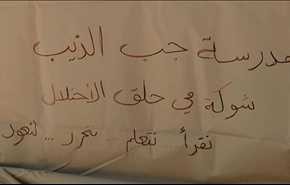 مدرسة جب الذيب
شوكة في حلق الاحتلال
نقرأ نتعلم ... نتحرر ... لنعود